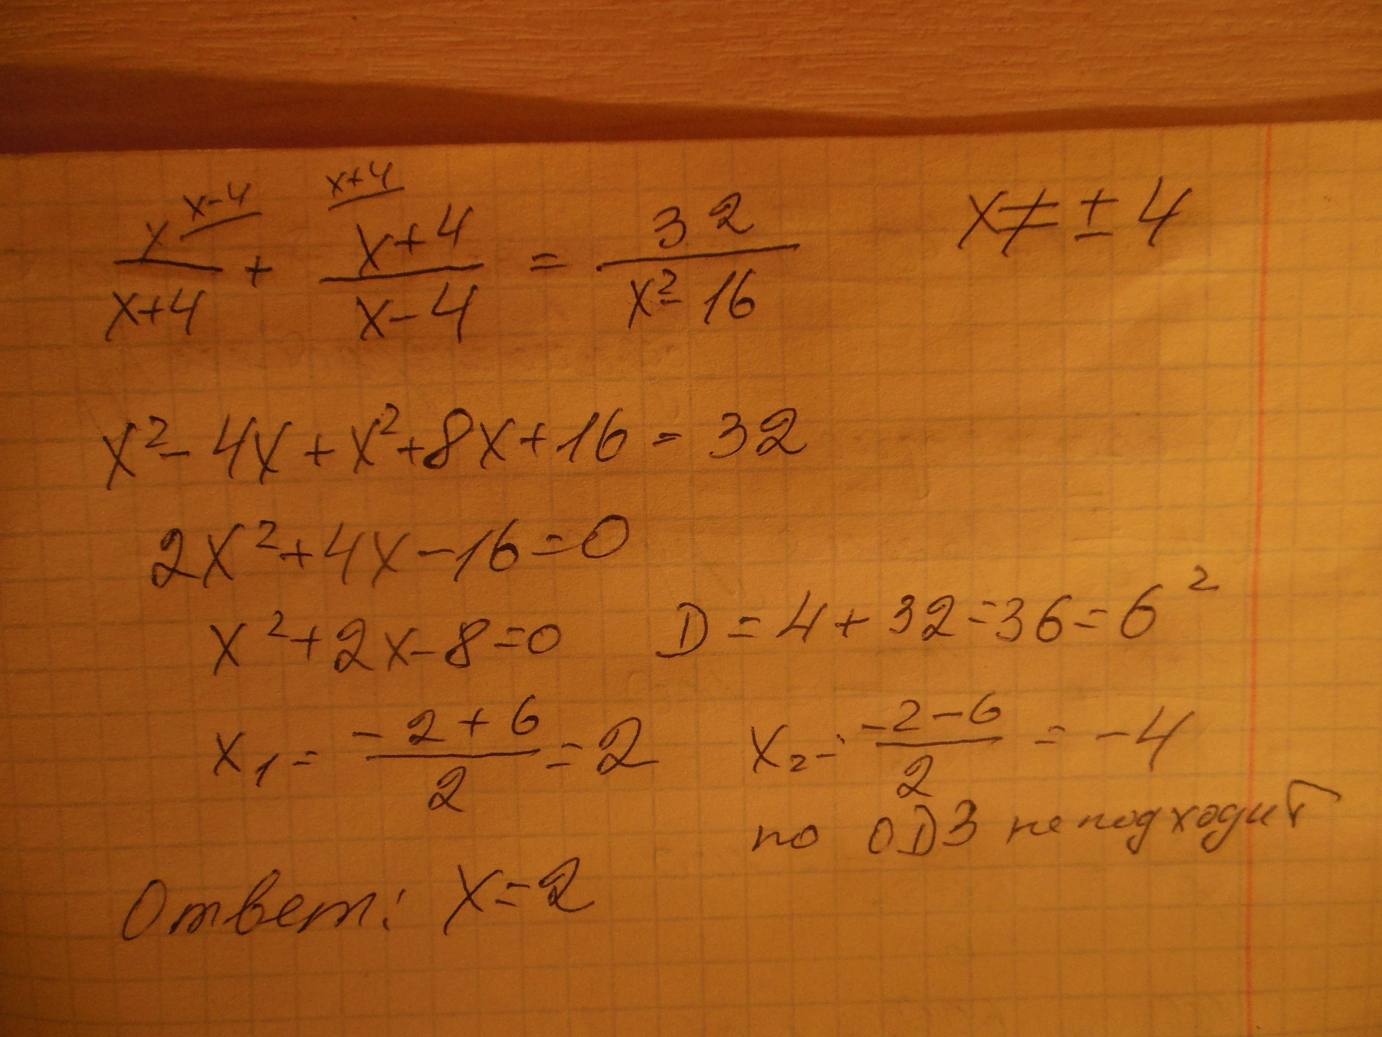 x^{x-4}/(x+4) + (x+4)^{x+4}/(x-4) = 32/(x²-16)   x ≠ ± 4
x² - 4x + x² + 8x + 16 = 32
2x² + 4x - 16 = 0
x² + 2x - 8 = 0   D = 4 + 32 = 36 = 6²
x₁ = (-2+6)/2 = 2   x₂ = (-2-6)/2 = -4
по ОДЗ не подходит
Ответ: x = 2